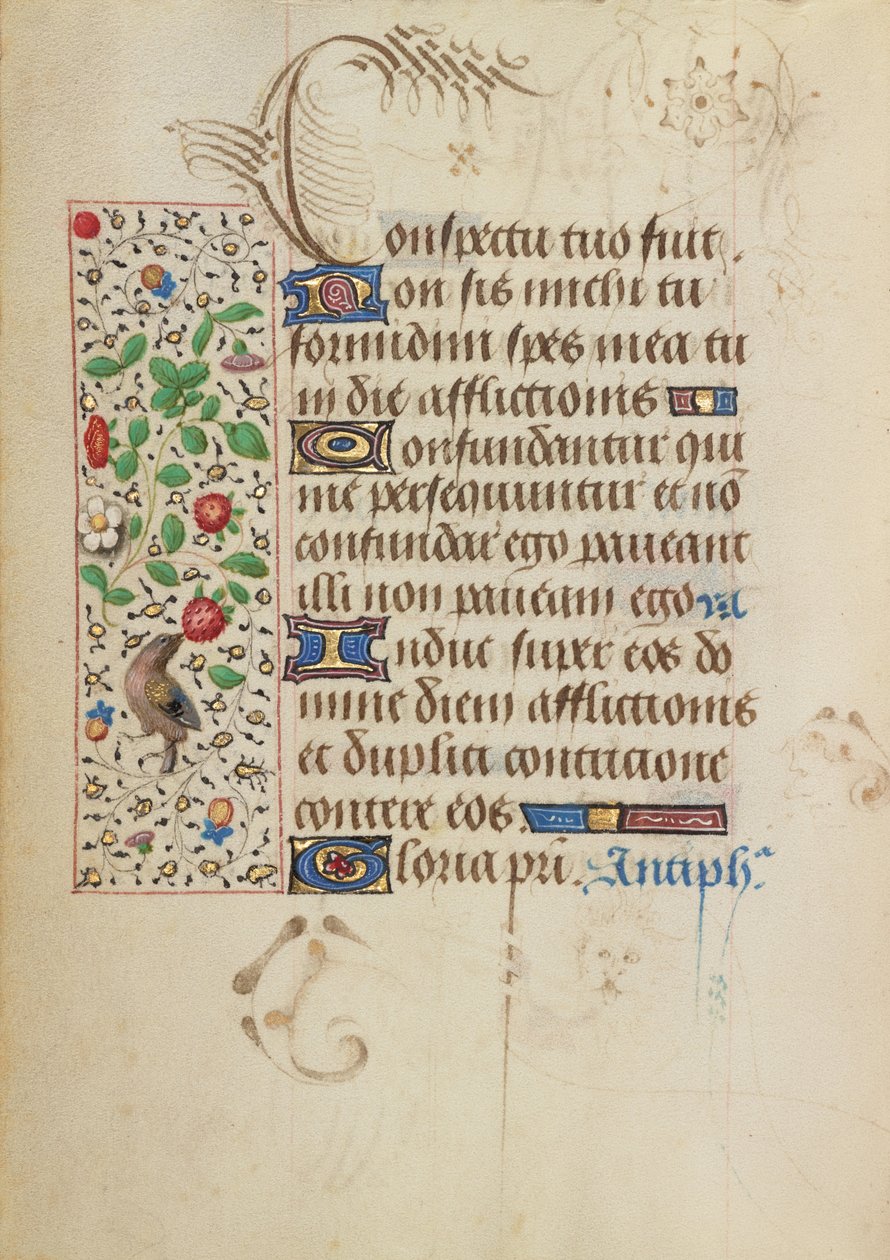 Conspectu tuo fuit.
Non sis michi tu
formidini spes mea tu
in die afflictionis
Confundantur qui
me persequuntur et nō
confundar ego paueant
illi non paueam ego
Induc super eos do
mine diem afflictionis
et duplici contricione
contere eos.
Gloria pri. Antiphᵃ.